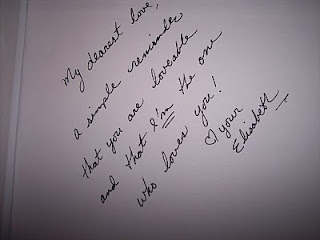 My dearest love,
a simple reminder
that you are loveable
and that I'm the one
who loves you!
♡ your
Elisabeth